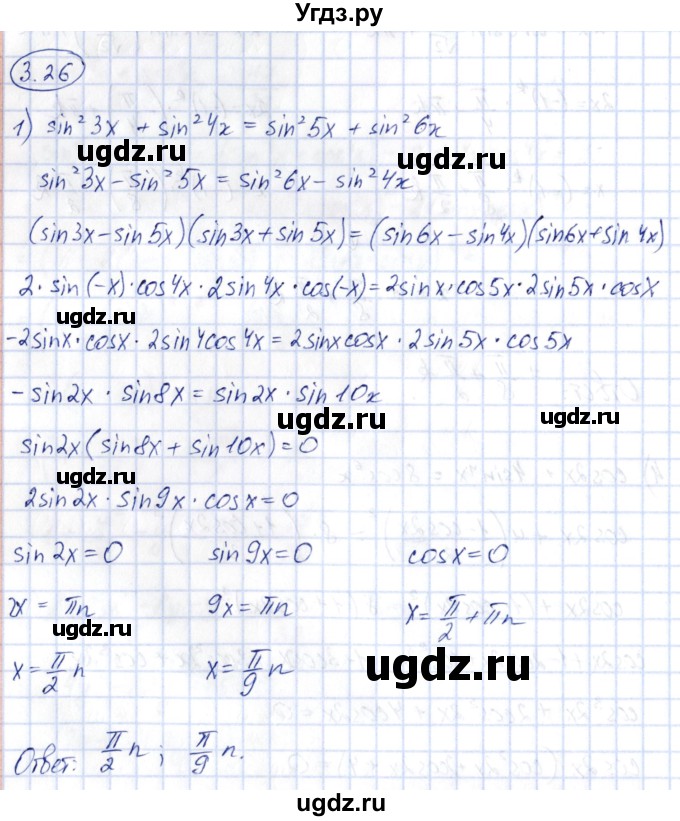 Угдз.ру
3.26
1) sin²3x + sin²4x = sin²5x + sin²6x
ugdz.ru ugdz.ru
sin²3x − sin²5x = sin²6x − sin²4x
(sin3x − sin5x)(sin3x + sin5x) = (sin6x − sin4x)(sin6x + sin4x)
2· sin(−x)·cos4x·2sin4x·cos(−x) = 2sinx·cos5x·2sin5x·cosx
ugdz.ru
−2sinx·cosx·2sin4cos4x = 2sinxcosx·2sin5x·cos5x
−sin2x · sin8x = sin2x · sin10x
ugdz.ru
sin2x(sin8x + sin10x) = 0
ugdz.ru
2sin2x·sin9x·cosx = 0
sin2x = 0 sin9x = 0 cosx = 0
x = πn 9x = πn x = π/2 + πn
ugdz.ru
x = π/2 n x = π/9 n
ugdz.ru
Ответ: π/2 n; π/9 n.
ugdz.ru
ugdz.ru